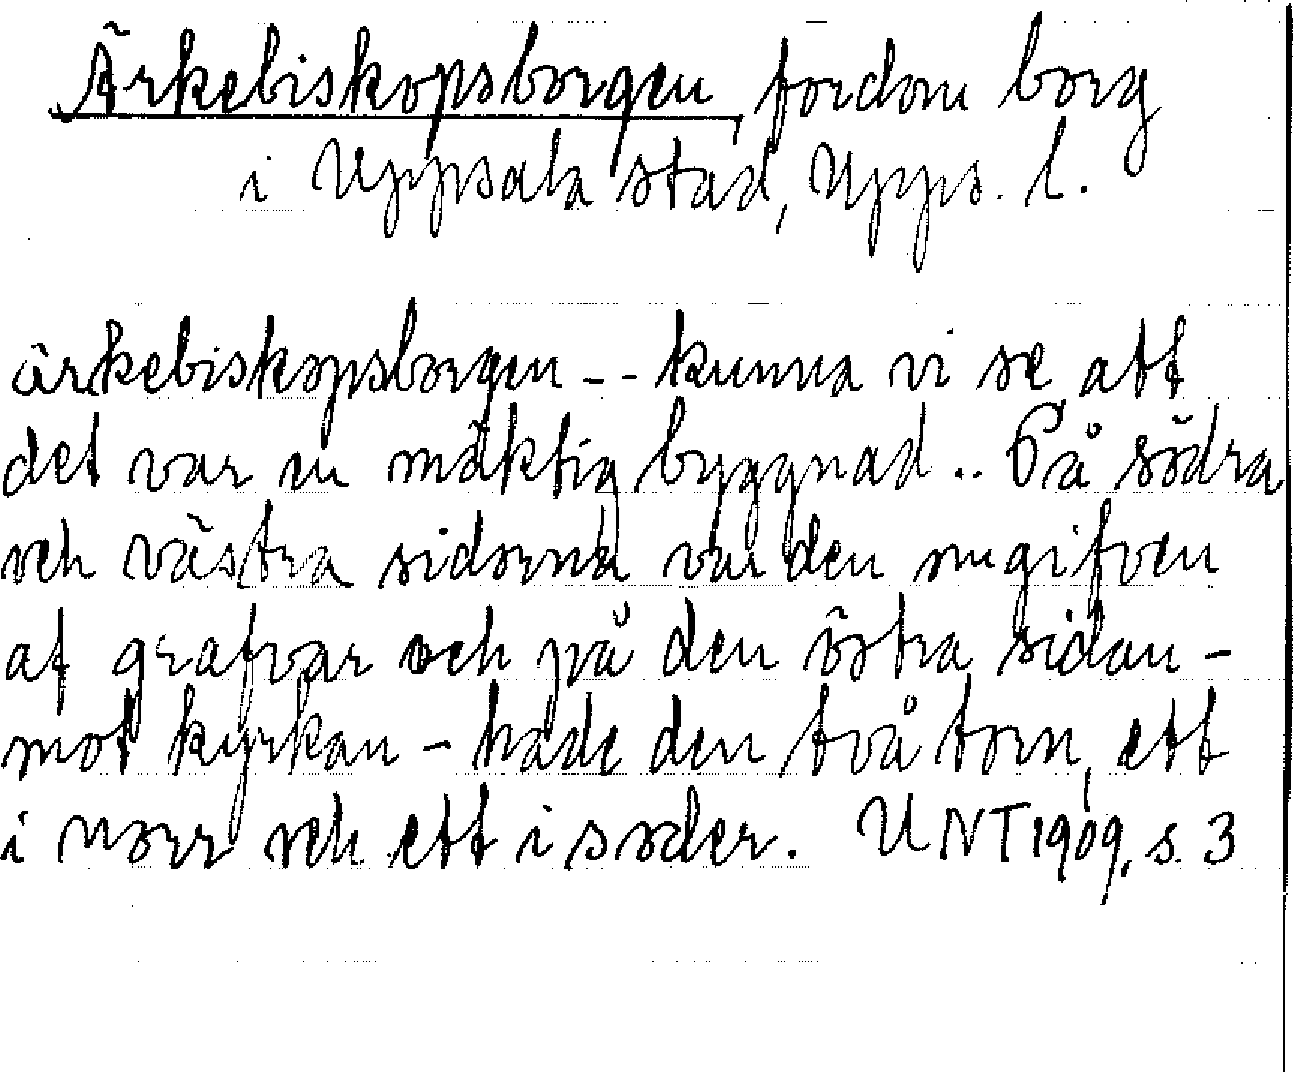 Ärkebiskopsborgen, fordom borg
i Uppsala stad, Upps. l.
ärkebiskopsborgen -- kunna vi se att
det var en mäktig byggnad .. På södra
och västra sidorna var den omgifven
af grafvar och på den östra sidan -
mot kyrkan - hade den två torn, ett
i norr och ett i söder. UNT 1909. s. 3